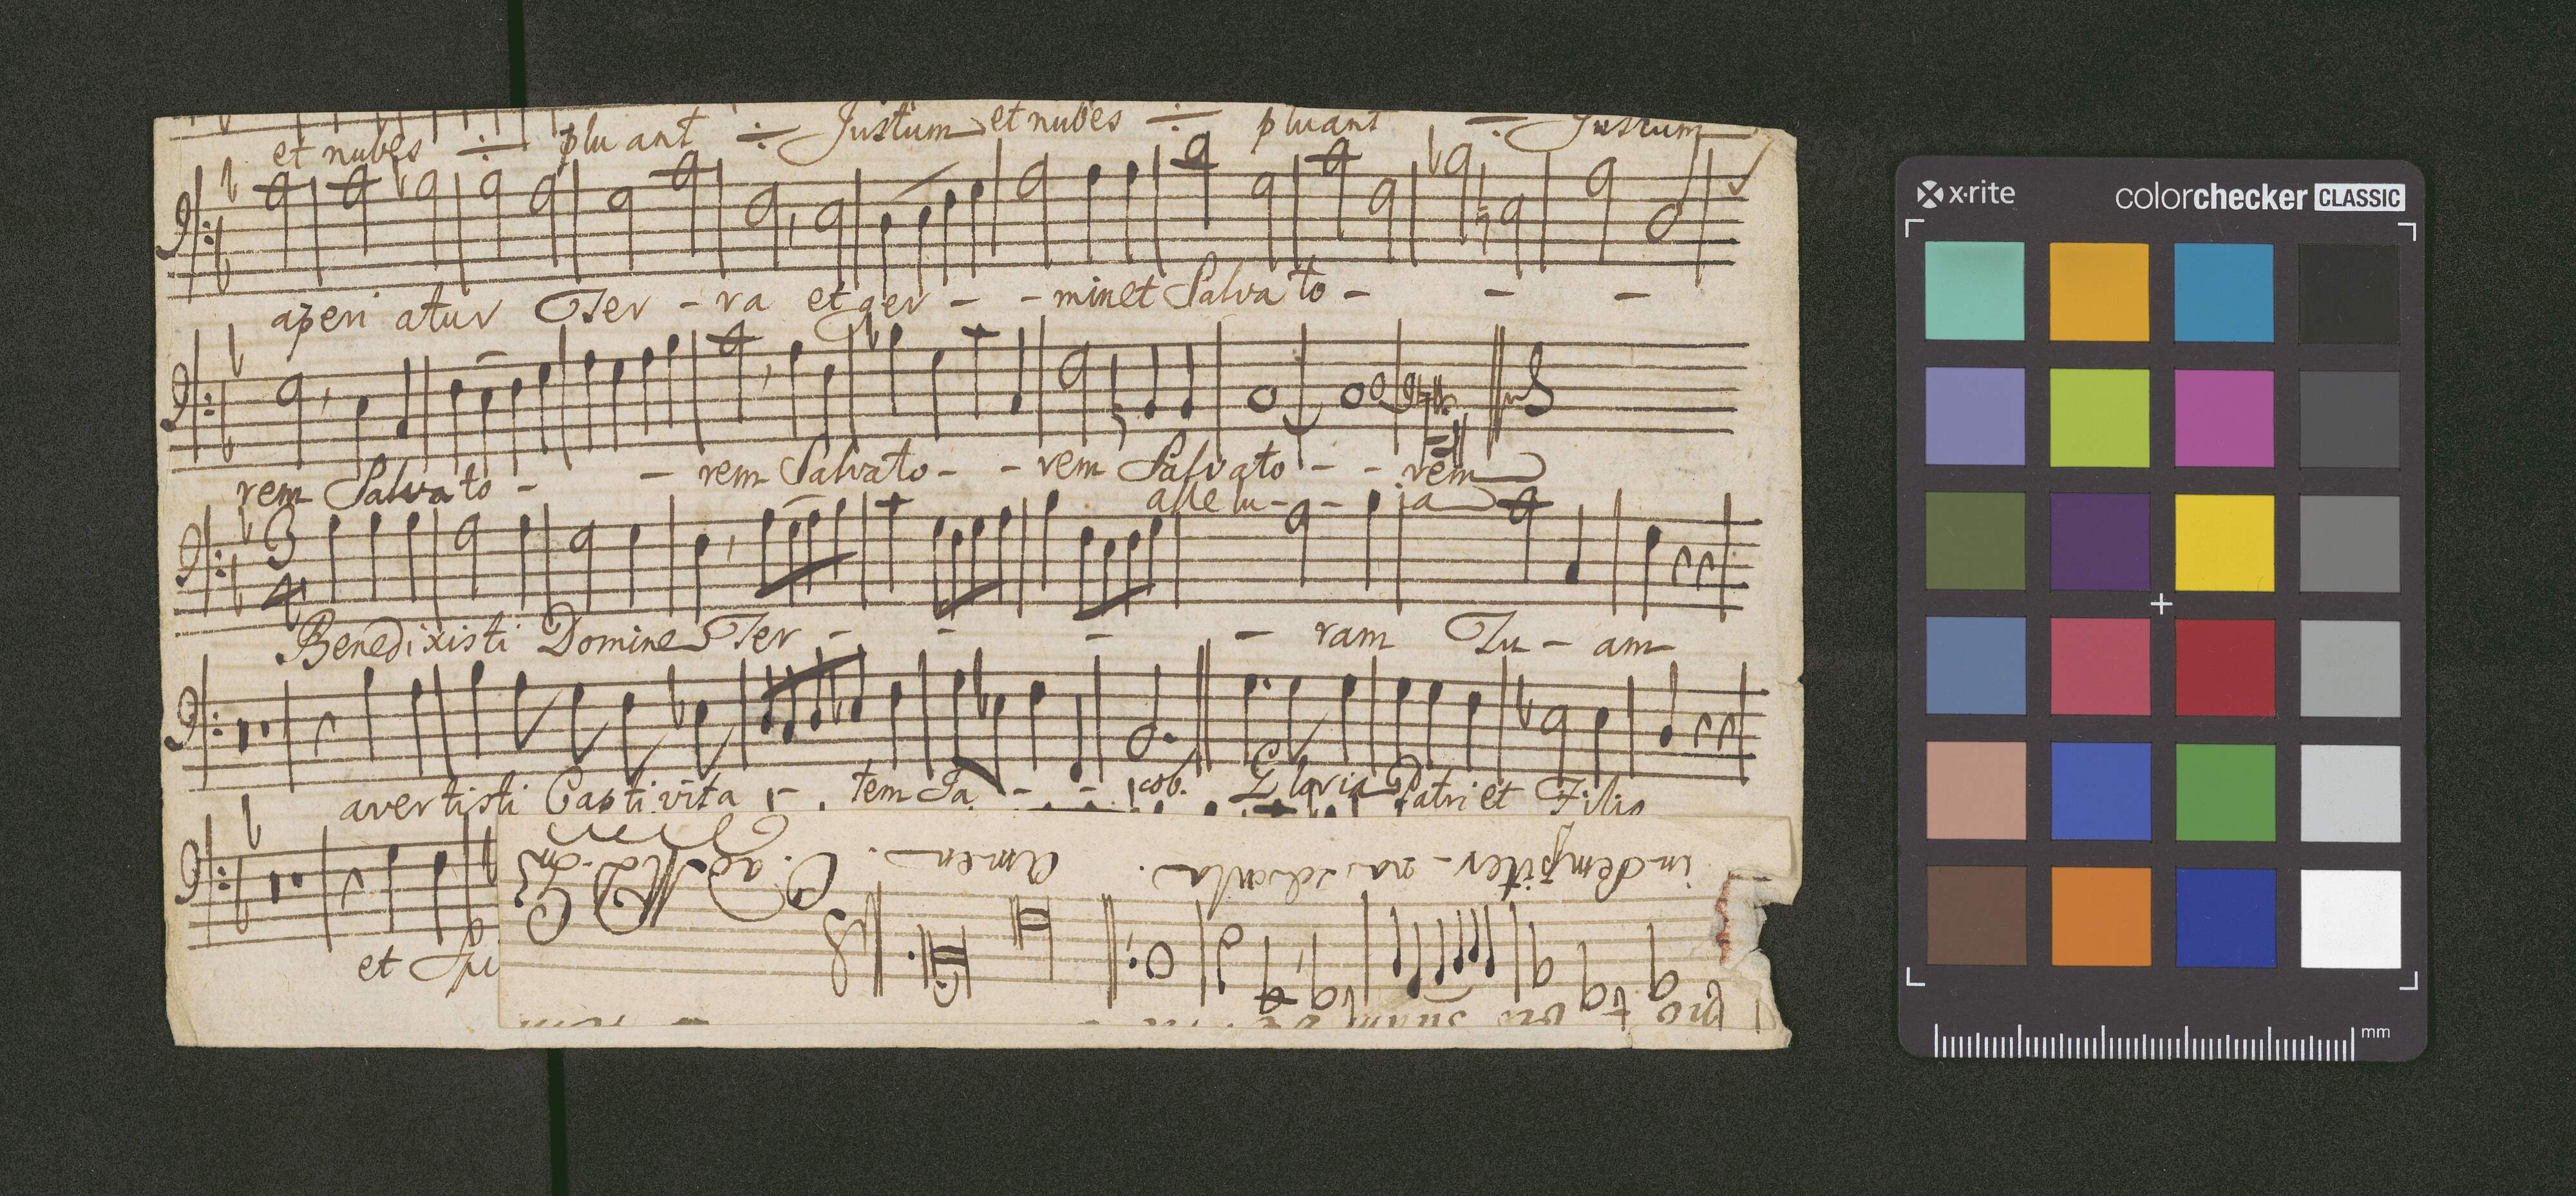 et nubes ÷ plu ant ÷ Justum et nubes ÷ pluant ÷ Justum
aperi atur Ter - ra et ger - - minet Salva to - - -
rem Salva to - - rem Salvato - - rem Salvato - - rem
alle lu - - ia
3
4
Benedixisti Domine Ter - - - - ram Tu - am
avertisti Captivita - tem Ja - - cob. Gloria Patri et Filio
et Spi
in sempiter - na secula . Amen .
x-rite
colorchecker CLASSIC
mm